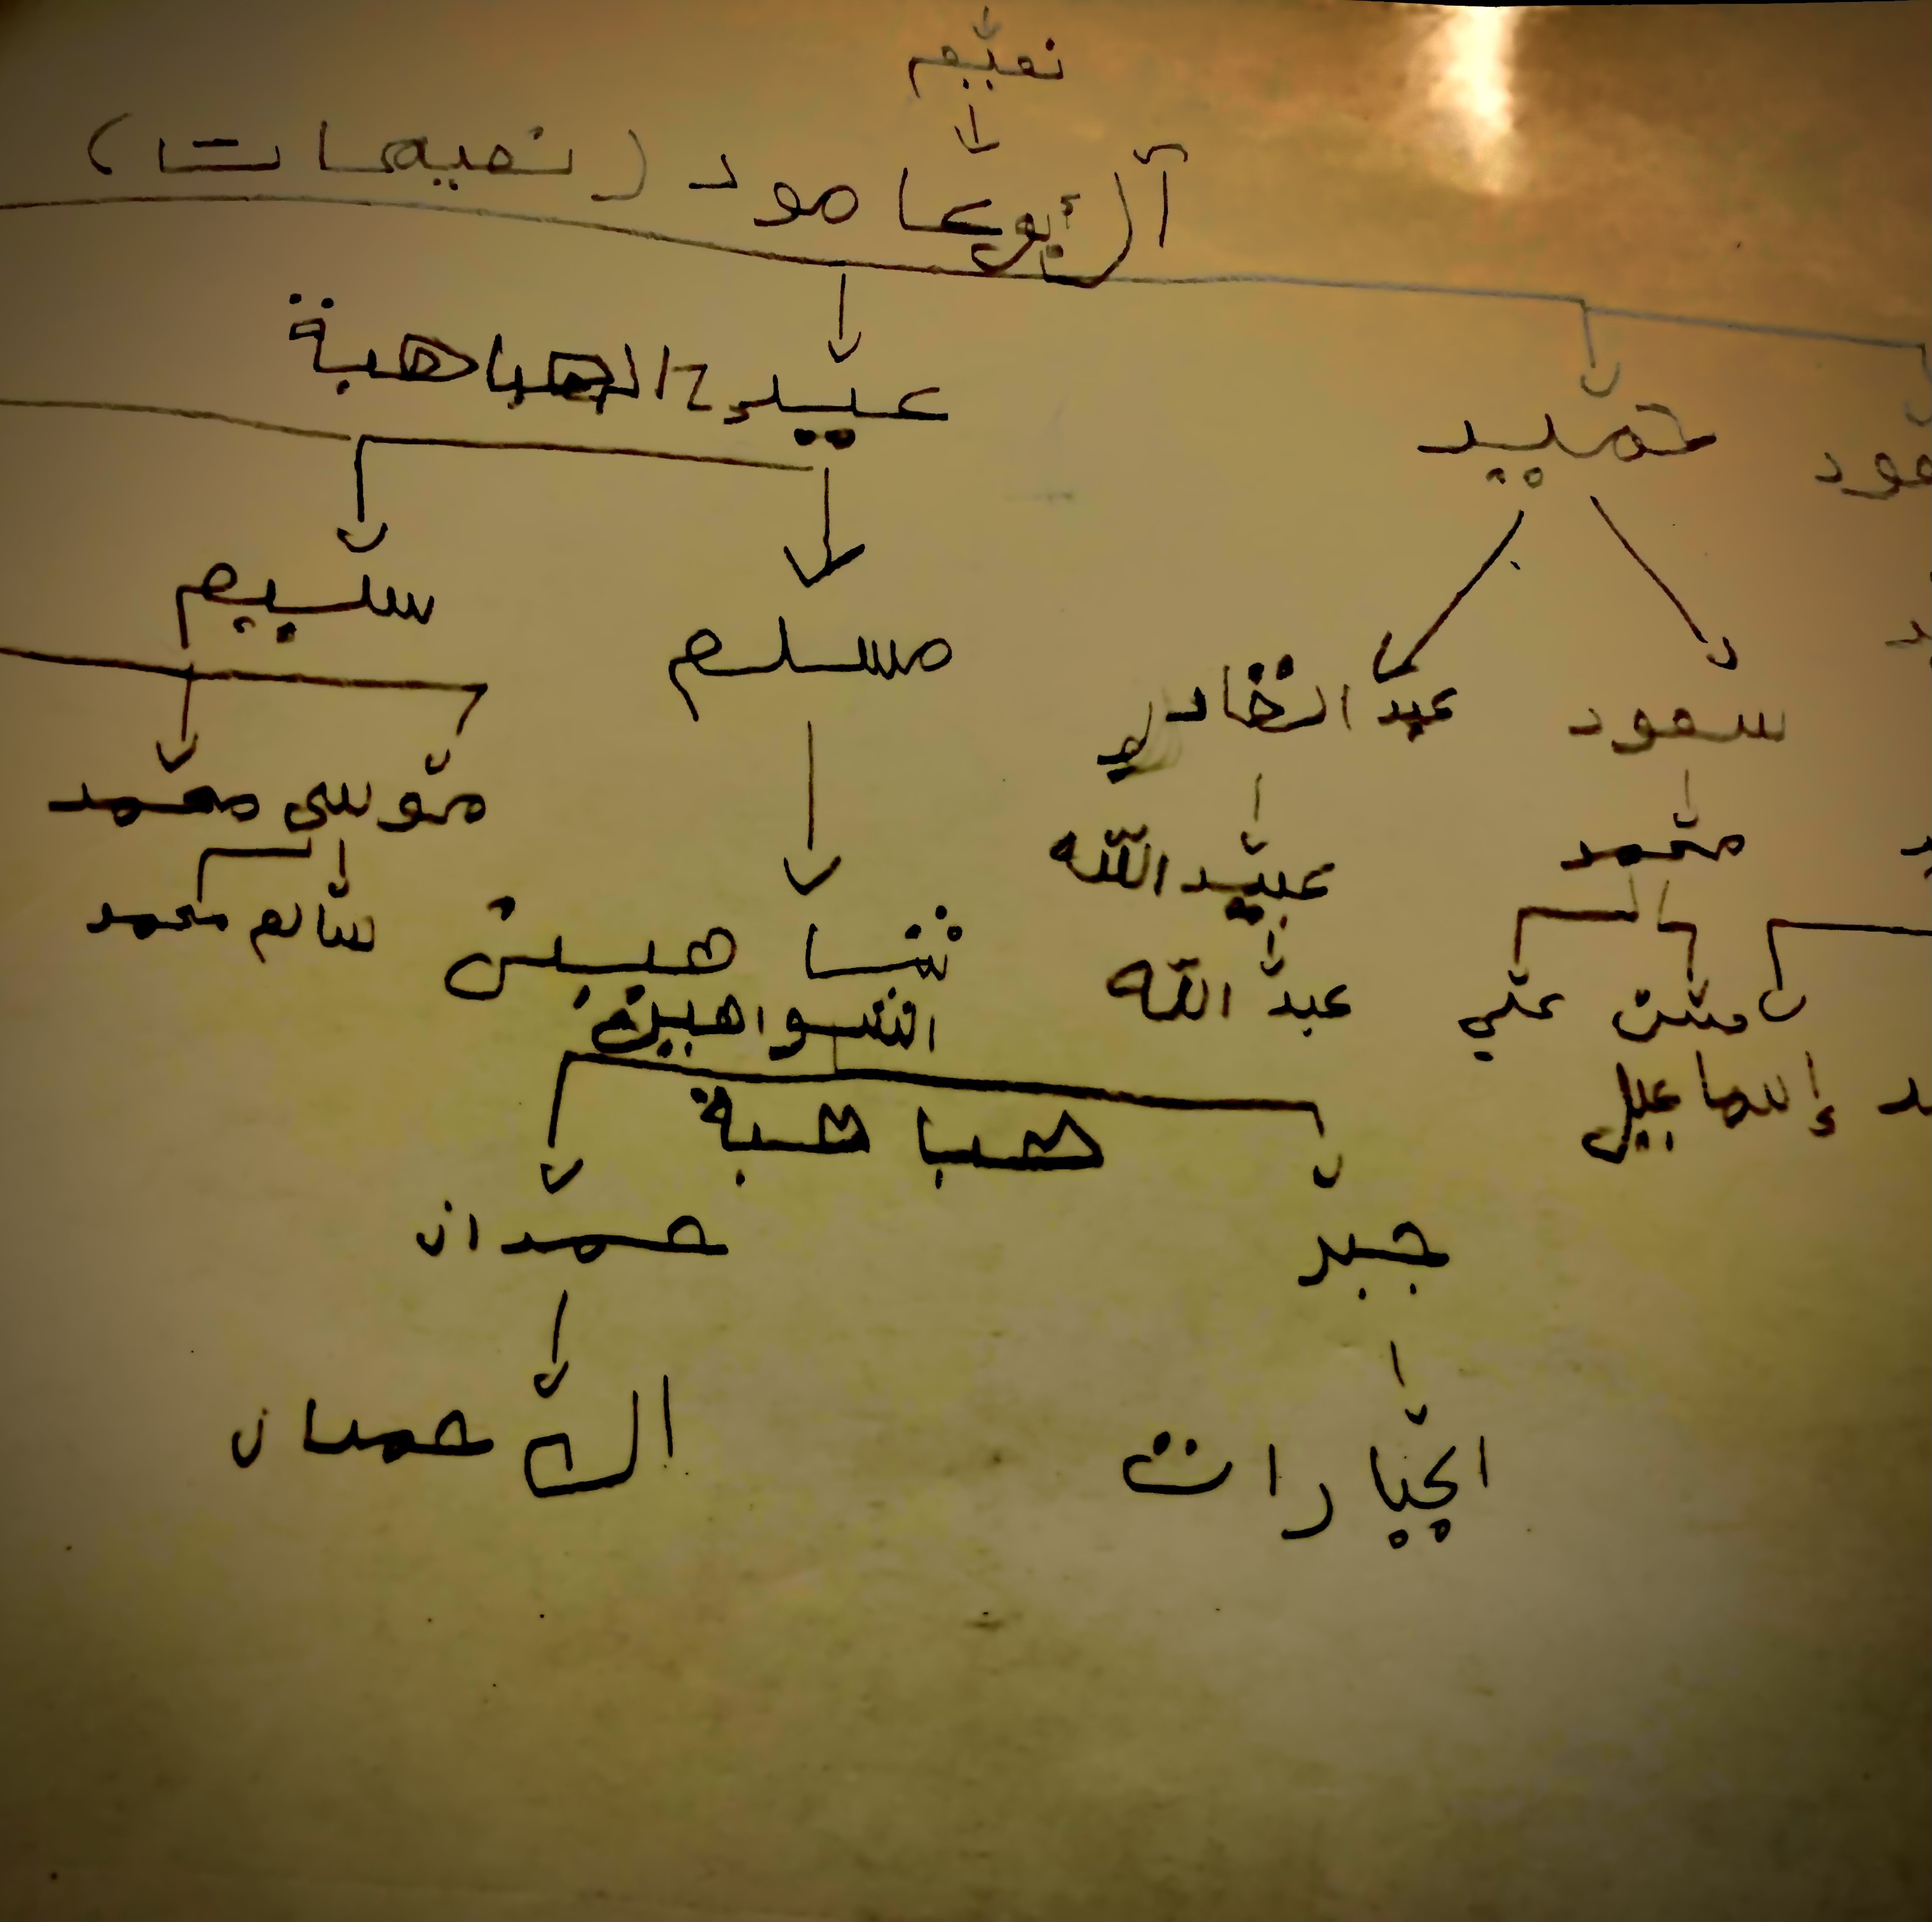 نعيم
آل أبو عامود (نعيمات)
عيد الهباهبة
حميد
سليم
مسلم
عبد القادر
سعود
موسى محمد
عبيد الله
محمد
سالم محمد
شاهين
عبد الله
علي
الشواهين
إسماعيل
هباهبة
حمدان
جبر
ال حمدان
الجبارات